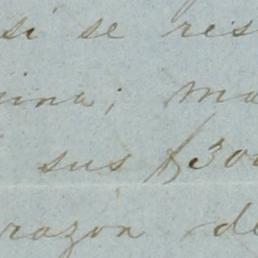 si se res
ina; ma
sus $300
razon de